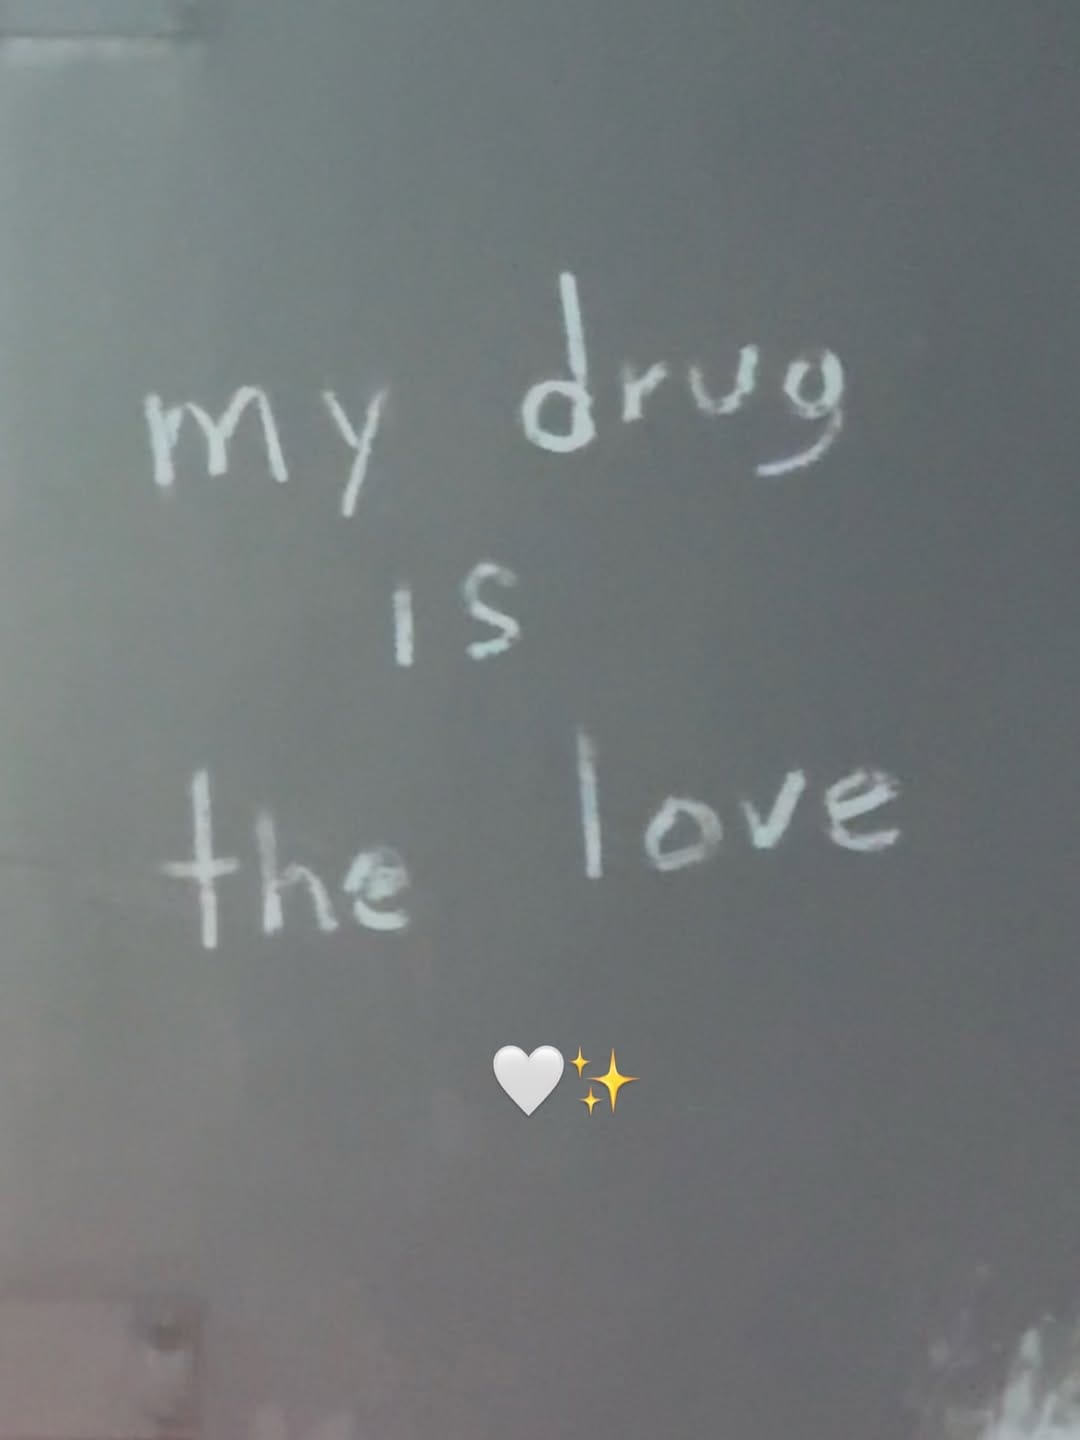 my drug
is
the love
🤍✨